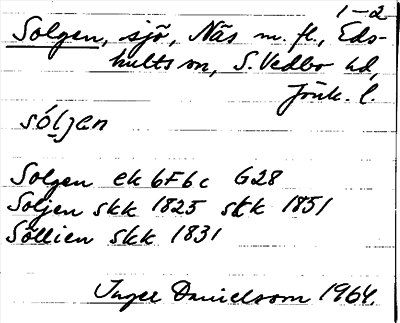 1-2
Solgen, sjö, Näs m. fl., Eds-
hults sn, S. Vedbo hd,
Jönk. l.
sóljen
Solgen ek 6F6c G28
Soljen skk 1825 skk 1851
Söllien skk 1831
Inger Danielsson 1964.